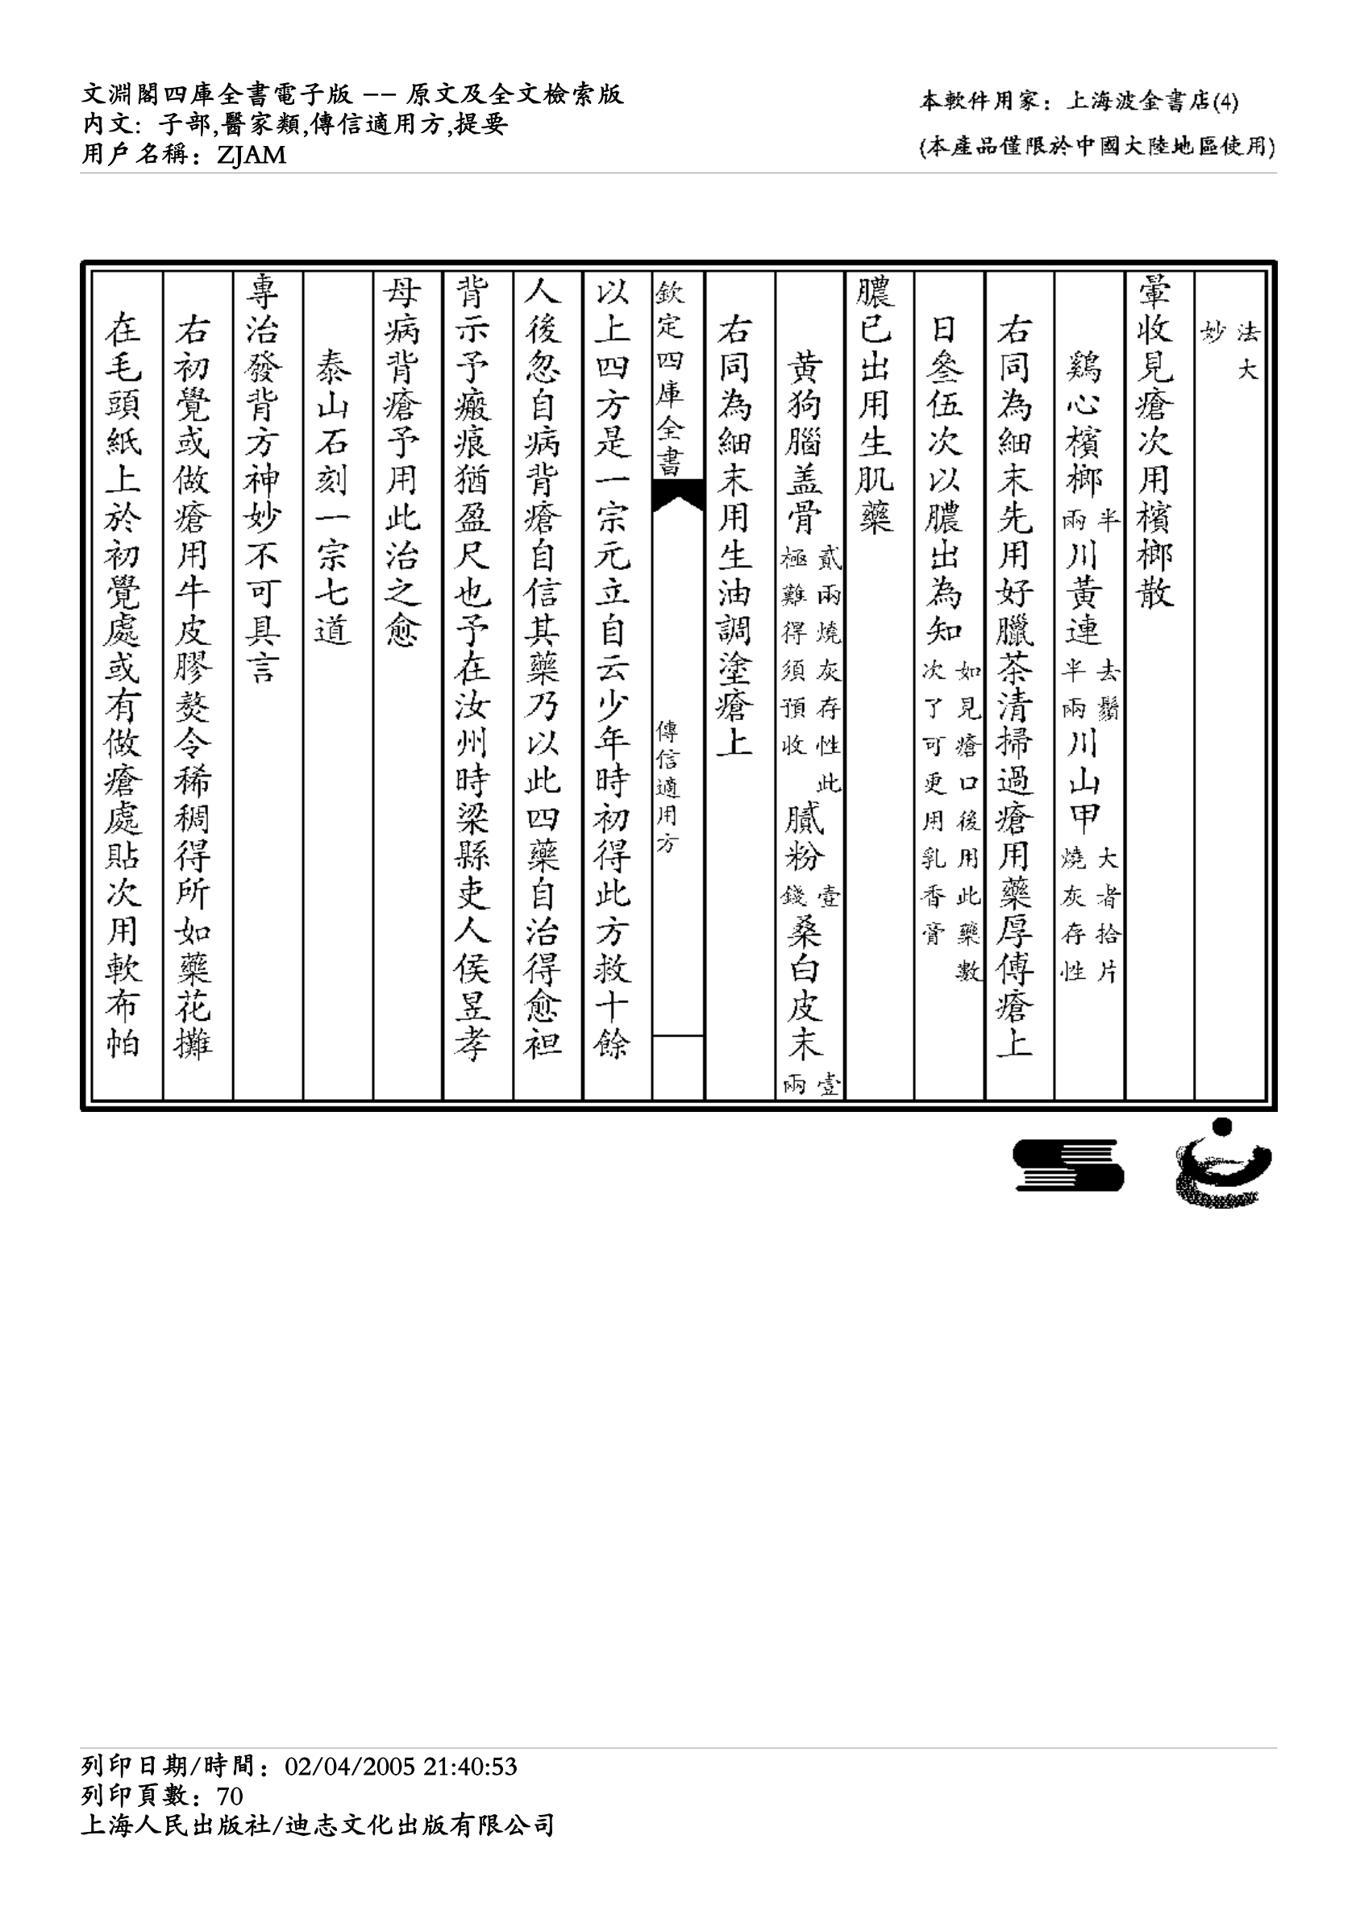 文淵閣四庫全書電子版 -- 原文及全文檢索版
內文: 子部,醫家類,傳信適用方,提要
用戶名稱: ZJAM
本軟件用家: 上海波金書店(4)
(本產品僅限於中國大陸地區使用)
法大
妙
暈收見瘡次用檳榔散
鷄心檳榔半兩川黃連去鬚半兩川山甲大者拾片燒灰存性
右同為細末先用好臘茶清掃過瘡用藥厚傅瘡上
日叄伍次以膿出為知如見瘡口後用此藥數次了可更用乳香膏
膿已出用生肌藥
黃狗腦盖骨貳兩燒灰存性此極難得須預收膩粉壹錢桑白皮末壹兩
右同為細末用生油調塗瘡上
欽定四庫全書
傳信適用方
以上四方是一宗元立自云少年時初得此方救十餘
人後忽自病背瘡自信其藥乃以此四藥自治得愈袒
背示予瘢痕猶盈尺也予在汝州時梁縣吏人侯昱孝
母病背瘡予用此治之愈
泰山石刻一宗七道
專治發背方神妙不可具言
右初覺或做瘡用牛皮膠熬令稀稠得所如藥花攤
在毛頭紙上於初覺處或有做瘡處貼次用軟布帕
列印日期/時間: 02/04/2005 21:40:53
列印頁數: 70
上海人民出版社/迪志文化出版有限公司